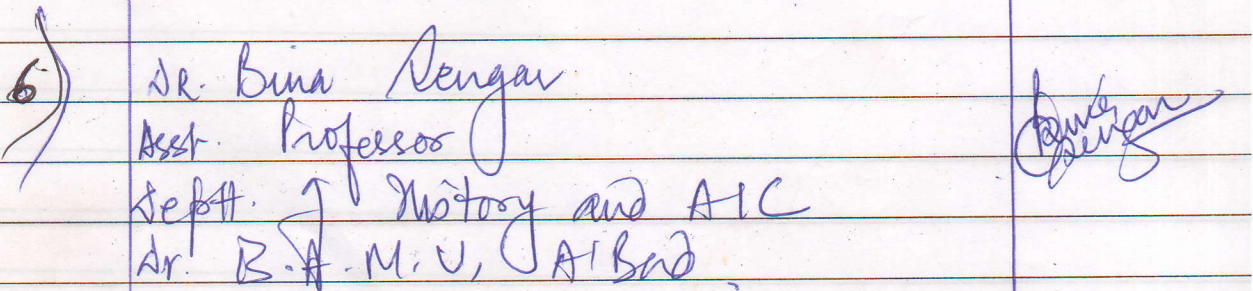 6)
Dr. Bina Sengar
Asst. Professor
Deptt. of History and AIC
Dr. B.A.M.U, A'Bad
Bina Sengar